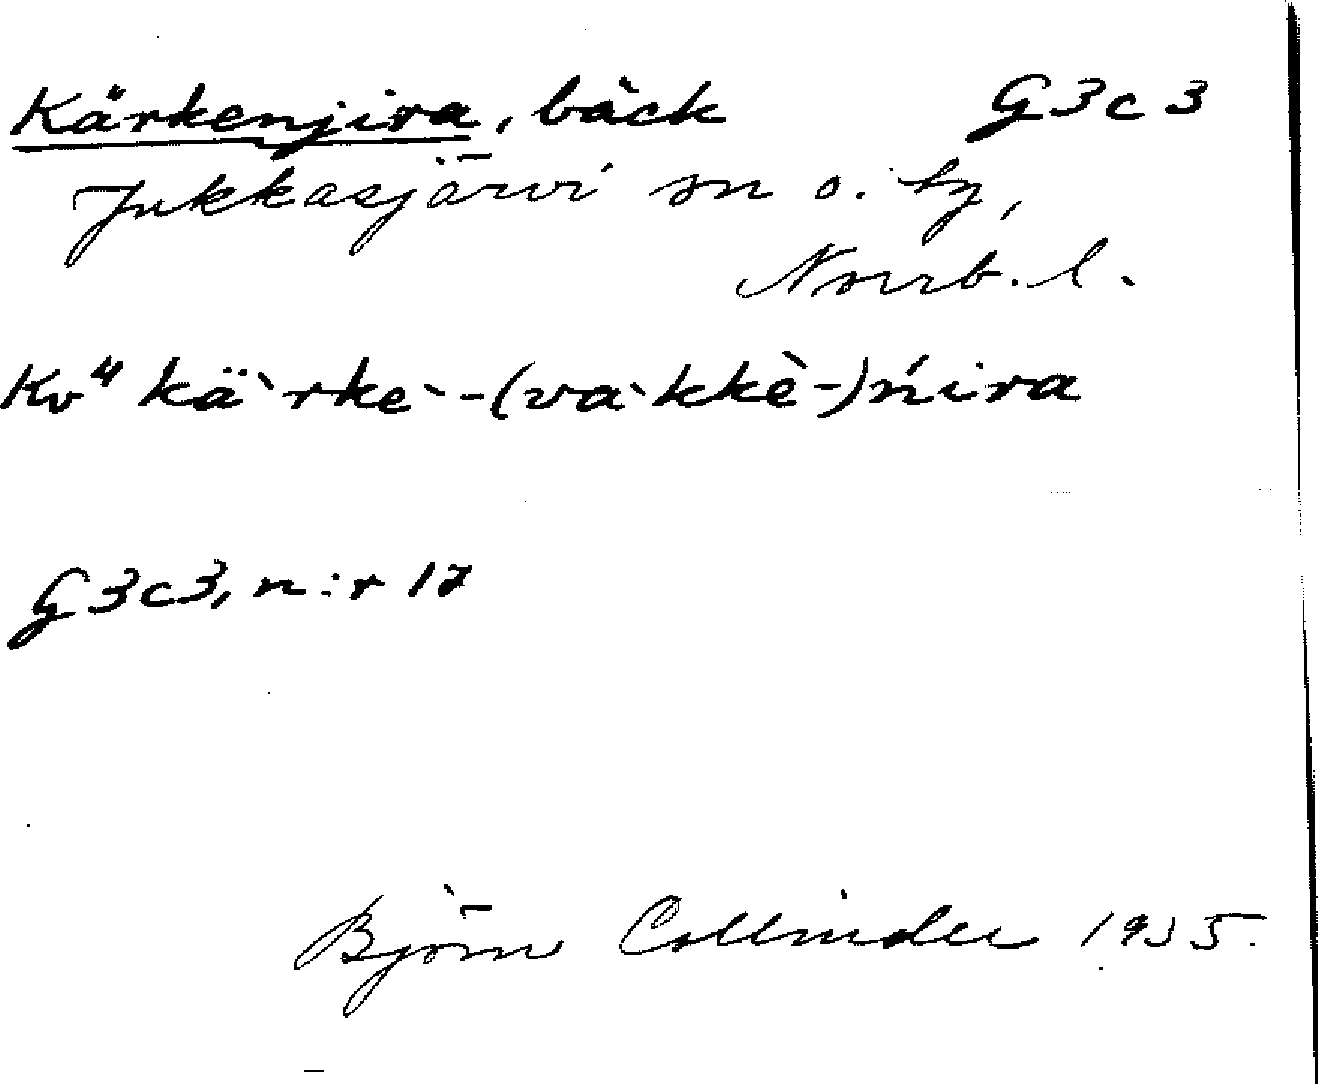 Kärkenjira, bäck G3c3
Jukkasjärvi sn o. tg,
Norrb. l.
Kv" kä`rke`-(va`kkè-)ńira
G3c3, n:r 17
Björn Collinder 1935.